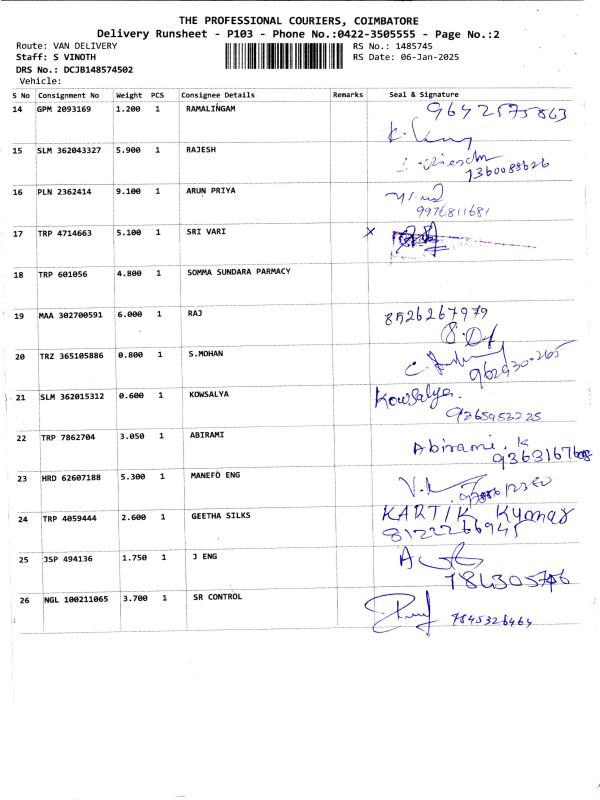 THE PROFESSIONAL COURIERS, COIMBATORE
Delivery Runsheet - P103 - Phone No.:0422-3505555 - Page No.:2
Route: VAN DELIVERY RS No.: 1485745
Staff: S VINOTH RS Date: 06-Jan-2025
DRS No.: DCJB148574502
Vehicle:
S No Consignment No Weight PCS Consignee Details Remarks Seal & Signature
14 GPM 2093169 1.200 1 RAMALINGAM 9642575863
15 SLM 362043327 5.900 1 RAJESH
7360088626
16 PLN 2362414 9.100 1 ARUN PRIYA
9976811681
17 TRP 4714663 5.100 1 SRI VARI X
18 TRP 601056 4.800 1 SOMMA SUNDARA PARMACY
19 MAA 302700591 6.000 1 RAJ 8526267979
20 TRZ 365105886 0.800 1 S.MOHAN
21 SLM 362015312 0.600 1 KOWSALYA Kowsalya.
9365953225
22 TRP 7862704 3.050 1 ABIRAMI Abirami. K
23 HRD 62607188 5.300 1 MANEFO ENG
24 TRP 4059444 2.600 1 GEETHA SILKS KARTIK Kumar
8122266945
25 JSP 494136 1.750 1 J ENG
26 NGL 100211065 3.700 1 SR CONTROL
7845326464